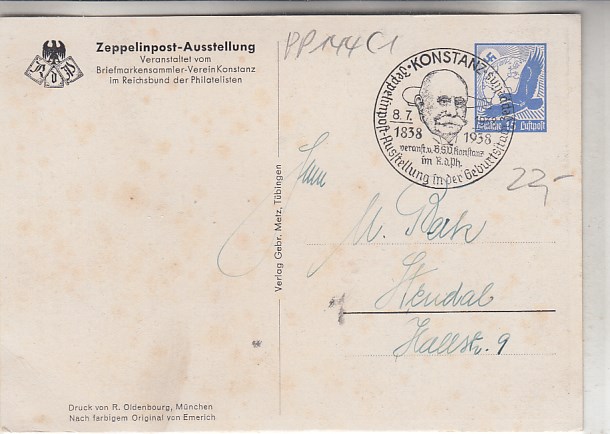 Zeppelinpost-Ausstellung
Veranstaltet vom
Briefmarkensammler-Verein Konstanz
im Reichsbund der Philatelisten
R d P
PP 144 C1
KONSTANZ
Zeppelinpost-Ausstellung in der Geburtsstadt
8.7.
1838 1938
veranst. v. B.S.V. Konstanz
im R.d.Ph.
15 Luftpost
22,-
Herrn
Stendal
Hallstr. 9
Verlag Gebr. Metz, Tübingen
Druck von R. Oldenbourg, München
Nach farbigem Original von Emerich